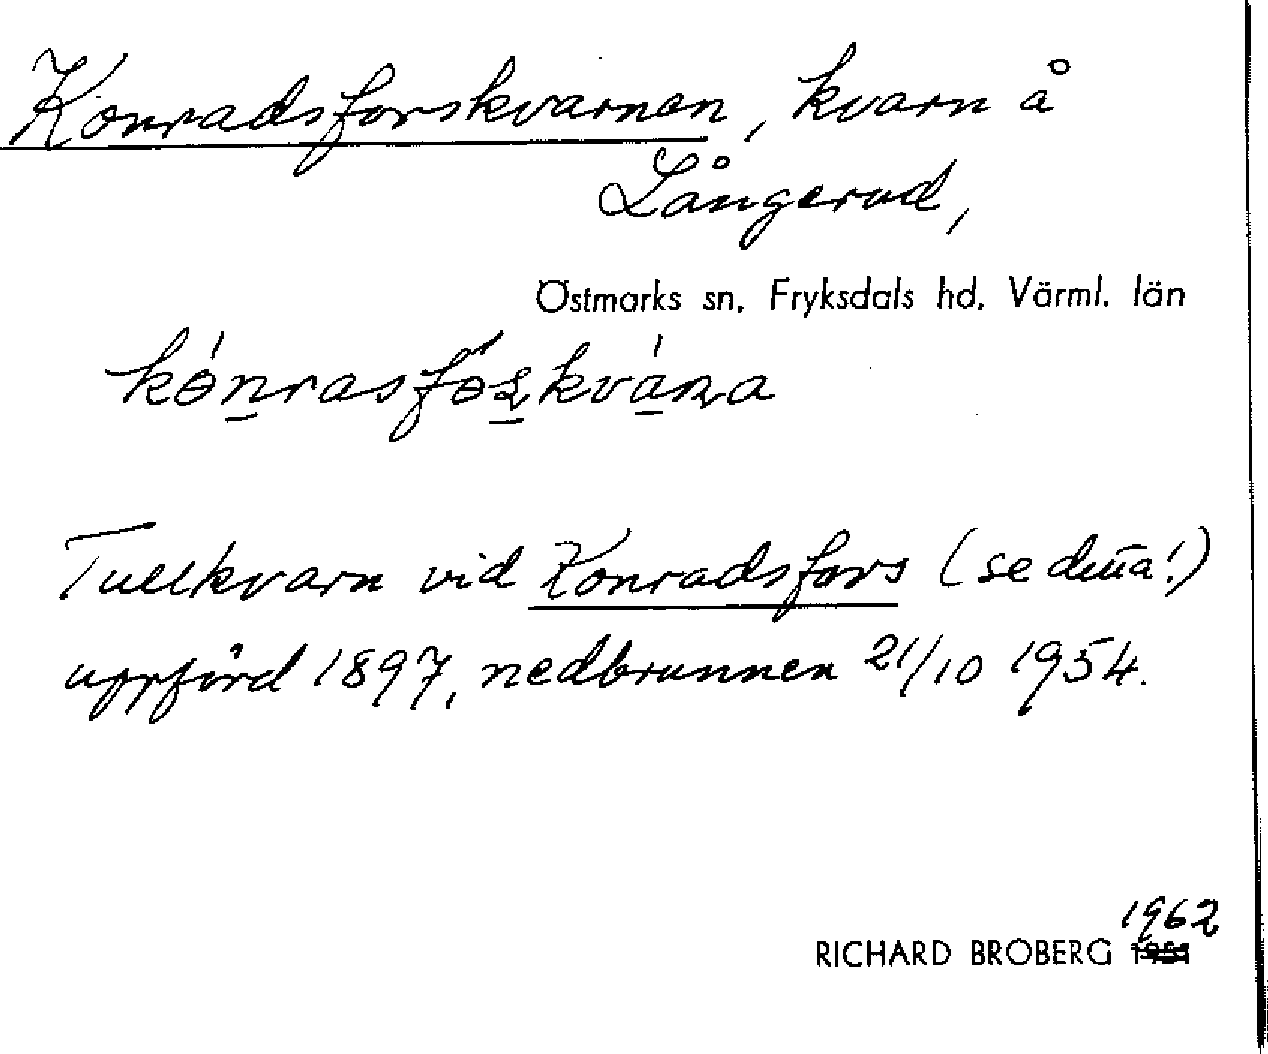 Konradsforskvarnen, kvarn å
Långerud,
Östmarks sn. Fryksdals hd. Värml. län
Tullkvarn vid Konradsfors (se den̄a!)
uppförd 1897, nedbrunnen 21/10 1954.
1962
RICHARD BROBERG 1951